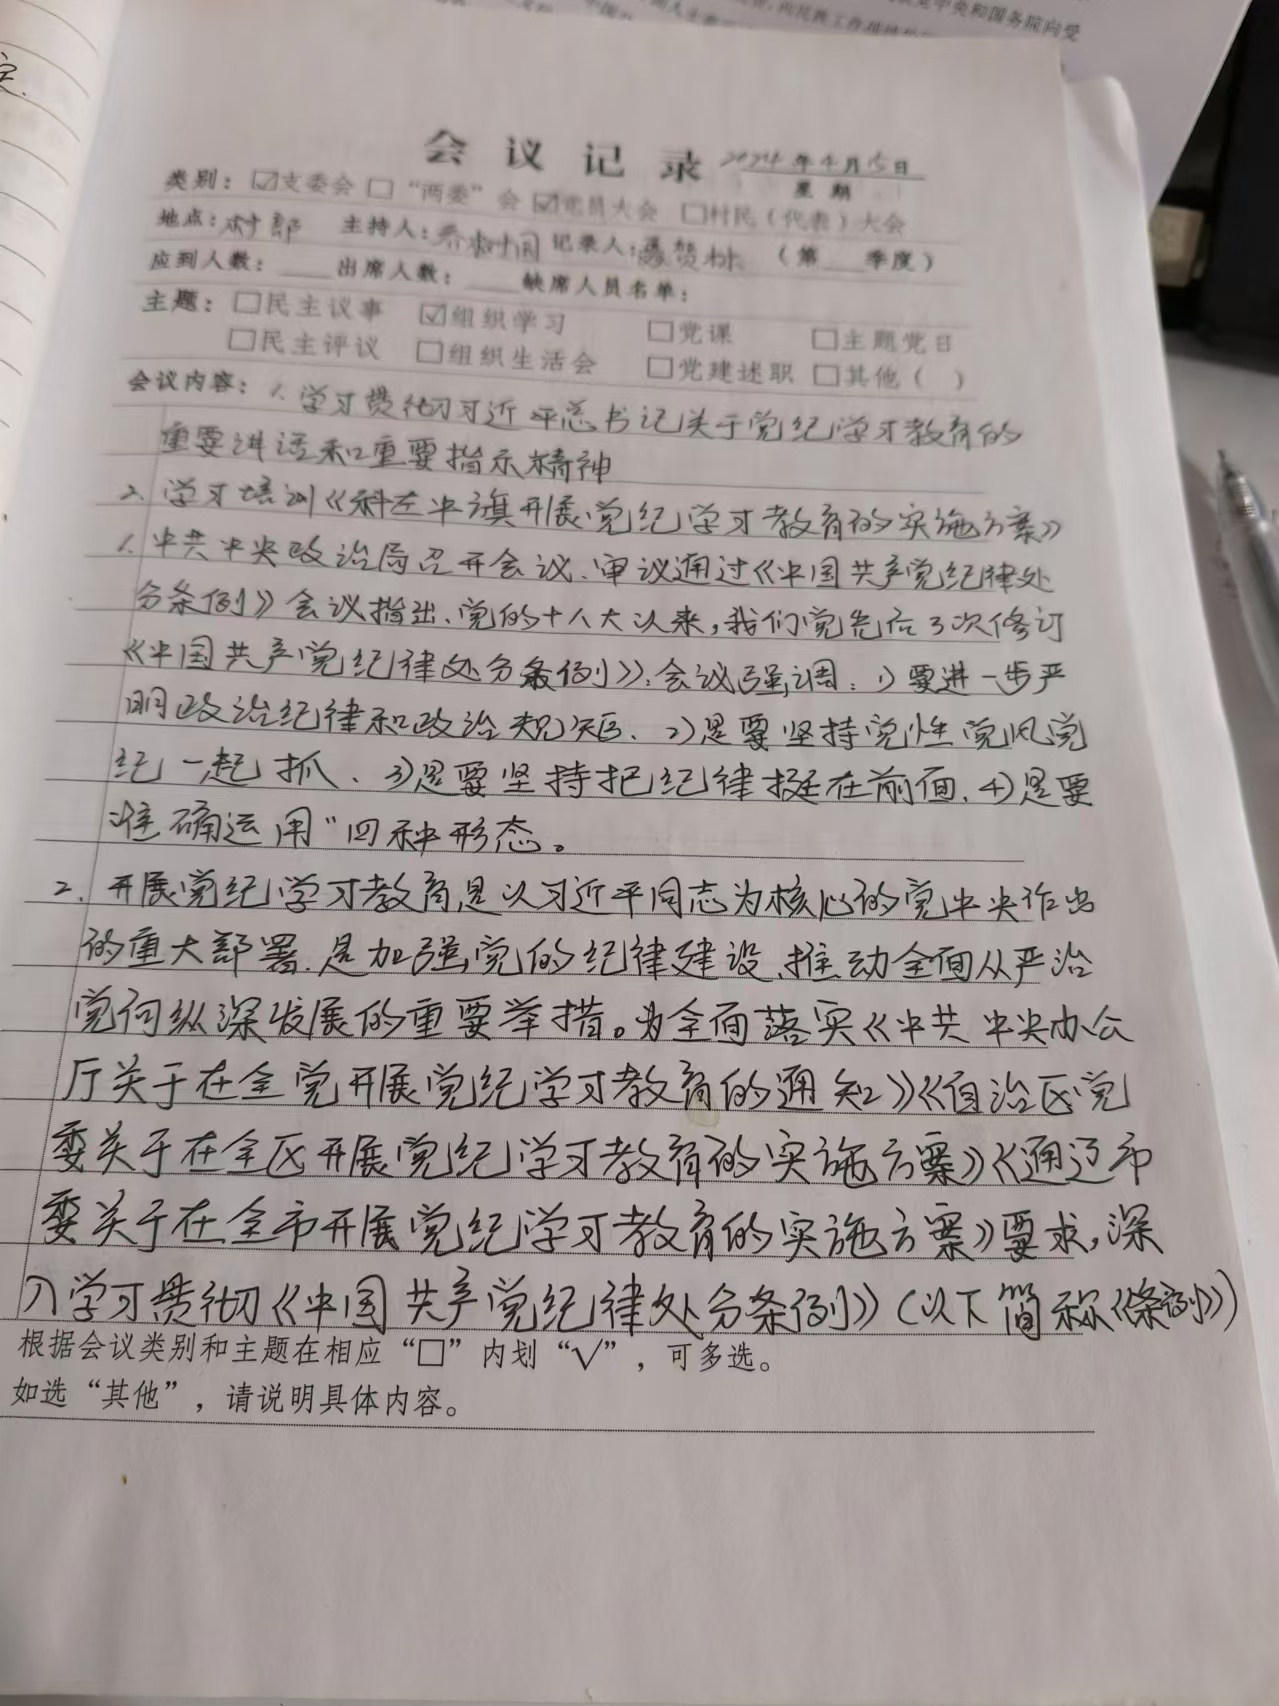 中央和国务院向受
会议记录 2024年4月15日
星期
类别：☑支委会 □“两委”会 ☑党员大会 □村民（代表）大会
地点：村部 主持人： 记录人： （第 季度）
应到人数： 出席人数： 缺席人员名单：
主题：□民主议事 ☑组织学习 □党课 □主题党日
□民主评议 □组织生活会 □党建述职 □其他（ ）
会议内容：1.学习贯彻习近平总书记关于党纪学习教育的
重要讲话和重要指示精神
2.学习培训《科左中旗开展党纪学习教育的实施方案》
1.中共中央政治局召开会议、审议通过《中国共产党纪律处
分条例》会议指出、党的十八大以来，我们党先后3次修订
《中国共产党纪律处分条例》；会议强调：1)要进一步严
明政治纪律和政治规矩、2)是要坚持党性党风党
纪一起抓、3)是要坚持把纪律挺在前面、4)是要
准确运用“四种形态。
2.开展党纪学习教育是以习近平同志为核心的党中央作出
的重大部署、是加强党的纪律建设、推动全面从严治
党向纵深发展的重要举措。为全面落实《中共中央办公
厅关于在全党开展党纪学习教育的通知》《自治区党
委关于在全区开展党纪学习教育的实施方案》《通辽市
委关于在全市开展党纪学习教育的实施方案》要求，深
入学习贯彻《中国共产党纪律处分条例》（以下简称《条例》）
根据会议类别和主题在相应“□”内划“√”，可多选。
如选“其他”，请说明具体内容。